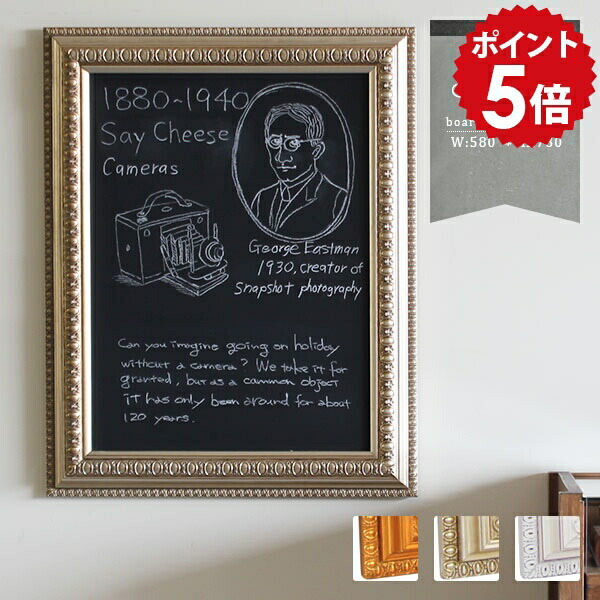 ポイント
5倍
boar
W:580
1880~1940
Say Cheese
Cameras
George Eastman
1930, creator of
Snapshot photography
Can you imagine going on holiday
without a camera? We take it for
granted, but as a common object
it has only been around for about
120 years.